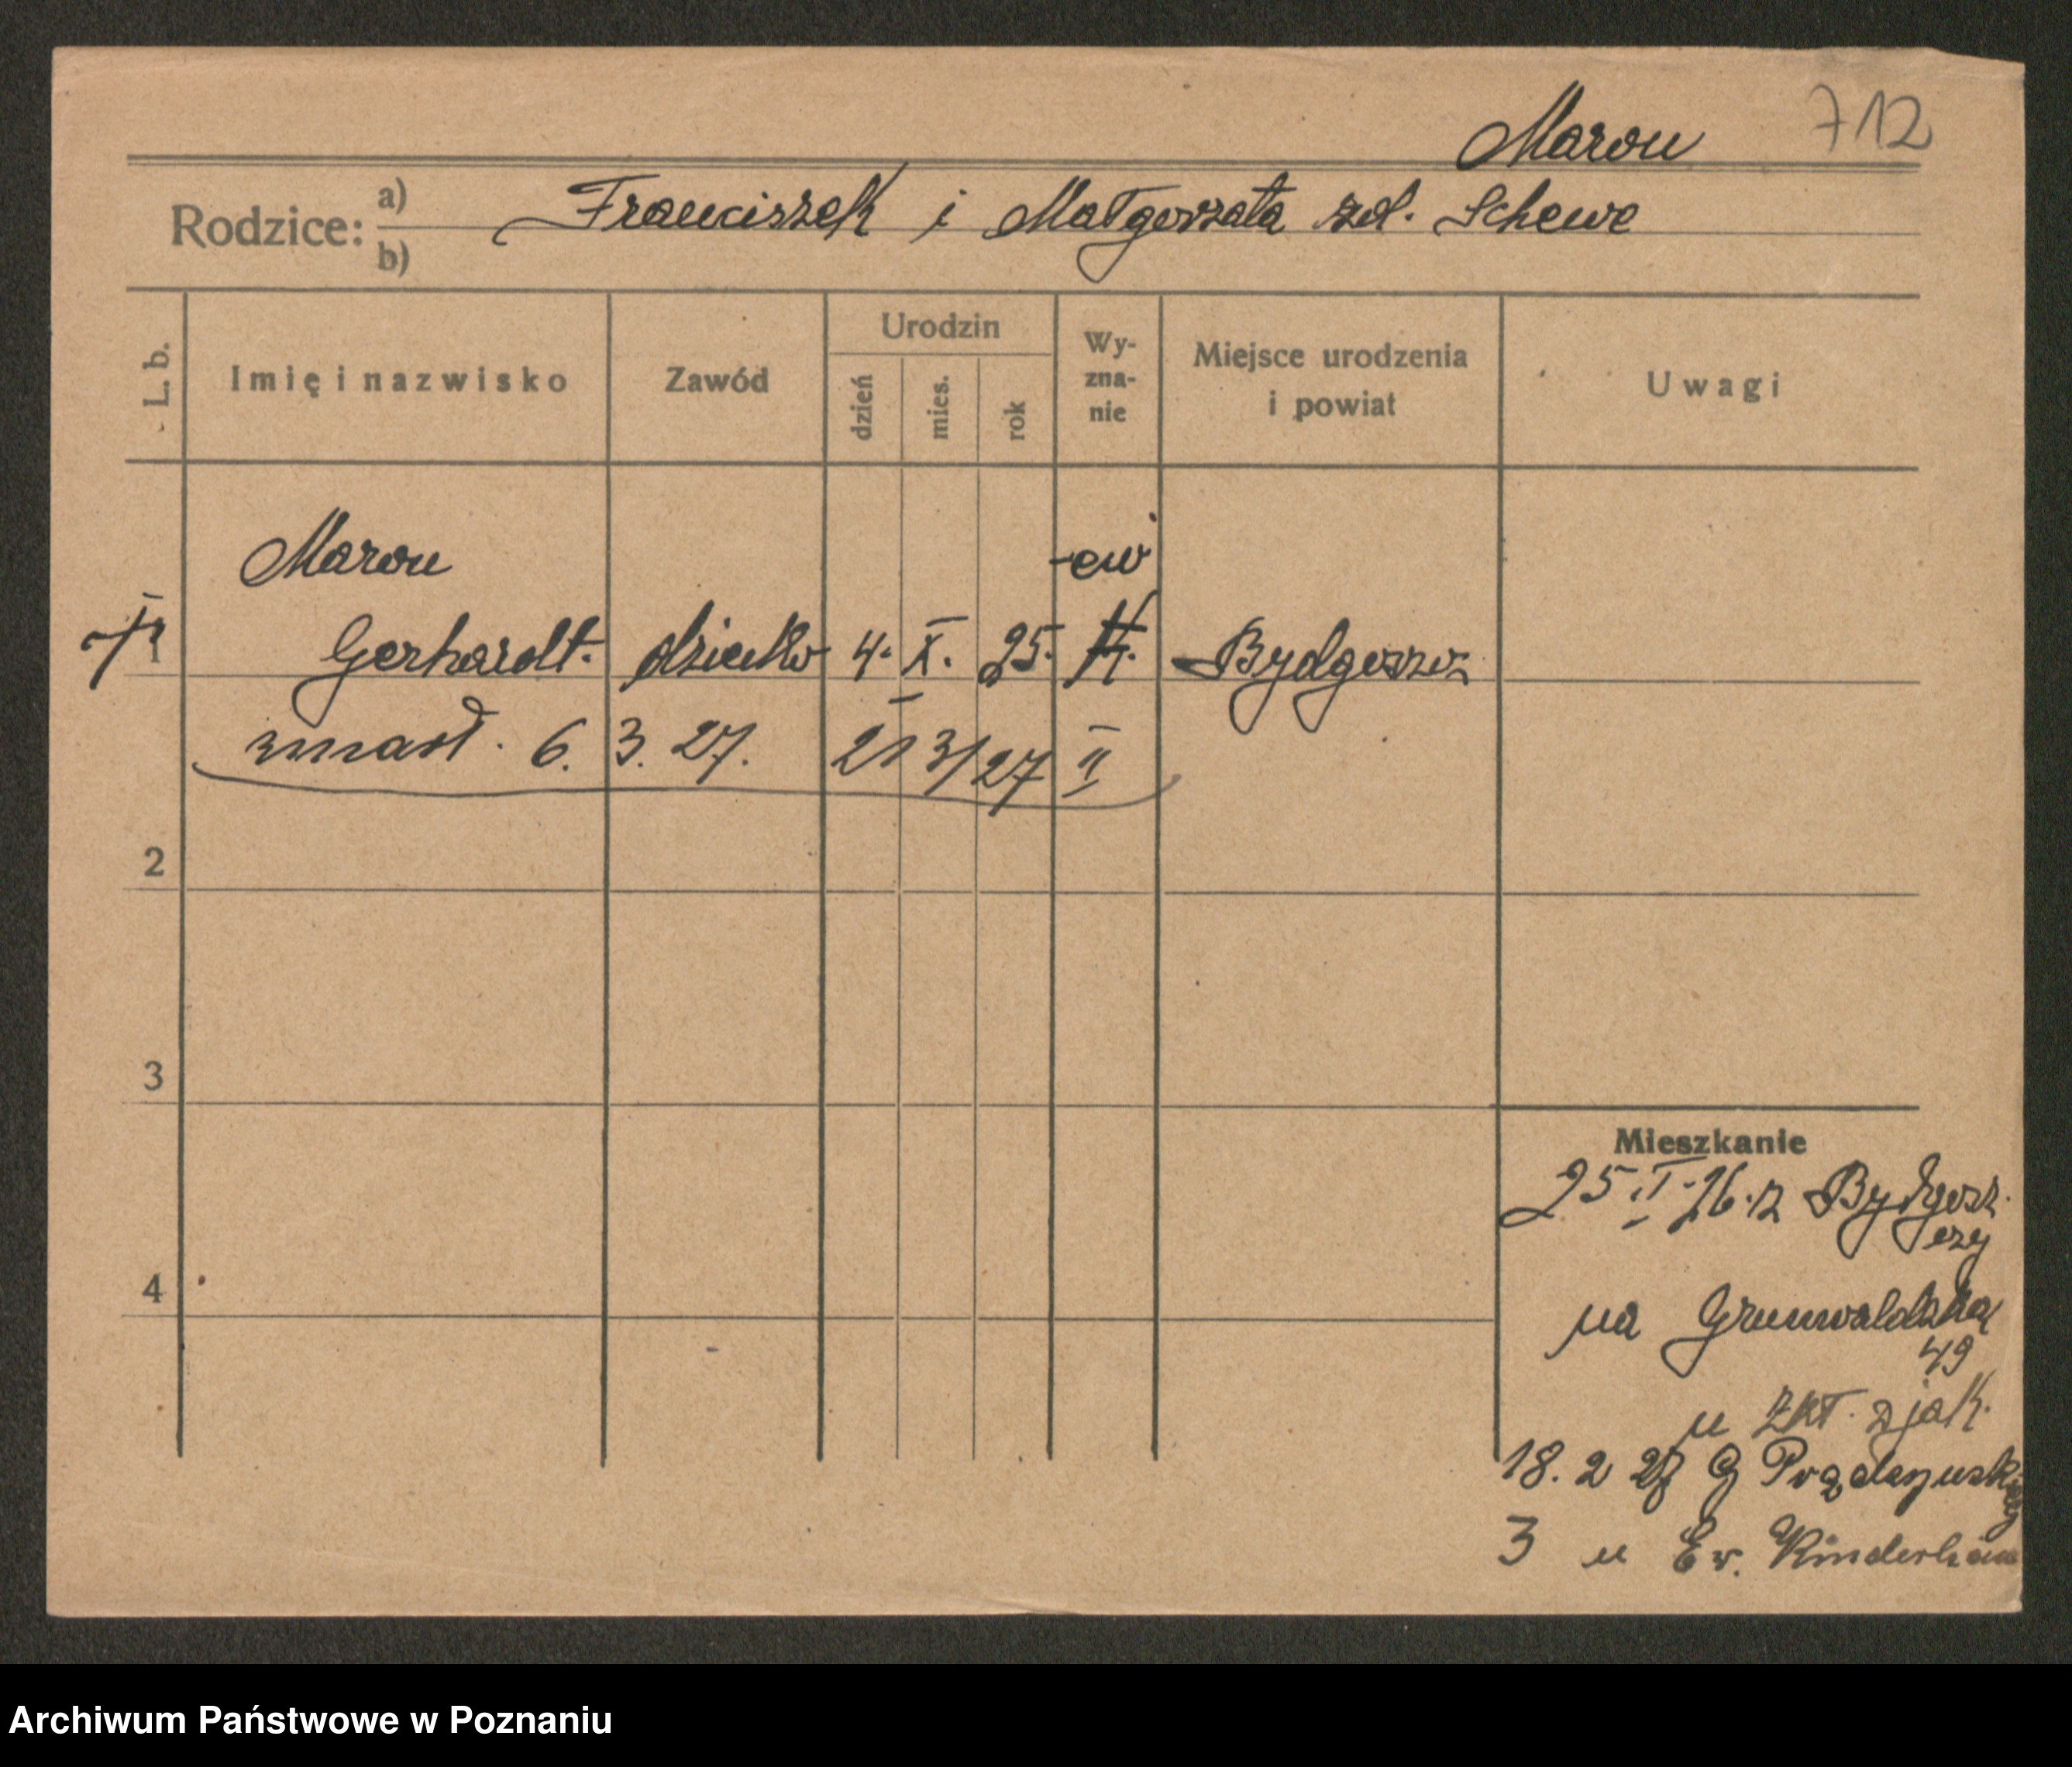 Marou 712
Rodzice: a) Franciszek i Małgorzata zd. Schewe
b)
L. b. Imię i nazwisko Zawód Urodzin dzień mies. rok Wy-zna-nie Miejsce urodzenia i powiat Uwagi
Marou ew
1 Gerhardt. dziecko 4. X. 25. Bydgoszcz
zmarł. 6. 3. 27. 21 3/27 II
2
3
Mieszkanie
25 I. 26. z Bydgosz
czy
4
na Grunwaldzką
49
u Zkł. zjak.
18. 2 27 G Prądzyńskiego
3 u Ev. Kinderhaus
Archiwum Państwowe w Poznaniu